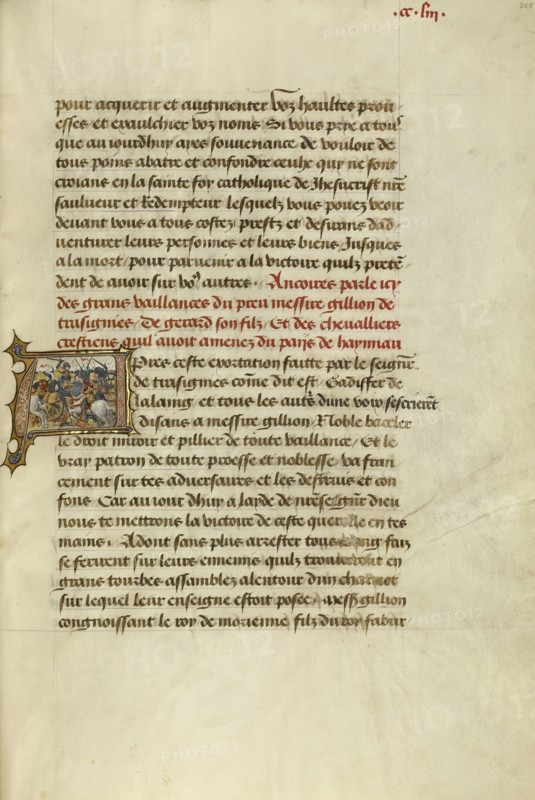 ·cc·liii·
pour acquerir et augmenter voz haultes prou
esses et exaulchier voz noms Si vous prye a tous
que au iourdhuy ayes souvenance de vouloir de
tous poins abatre et confondre ceulx qui ne sont
croians en la sainte foy catholique de Jhesucrist nre
saulueur et Redempteur lesquelz vous pouez veoir
deuant vous a tous costez prestz et desirans dad
venturer leurs personnes et leurs biens Jusques
a la mort / pour paruenir a la victoire quilz preten
dent de auoir sur vo9 autres · Ancoires parle icy
des grans vaillances du preu messire gillion de
trasignies / De gerard son filz / Et des chevalliers
crestiens quil auoit amenez du paijs de haynnau
Apres ceste exortation faitte par le seignr
de trasignies cõme dit est / Gadiffer de
lalaing et tous les autrs dune voix sescrierent
disans a messire gillion / Noble baceler
le droit miroir et pillier de toute vaillance / Et le
vray patron de toute proesse et noblesse va fran
cement sur tes aduersaires et les destruis et con
fons Car au iour dhuy a layde de nre seignr dieu
nous te mettrons la victoire de ceste querelle en tes
mains · Adont sans plus arrester tous faiz
se ferirent sur leurs ennemis quilz trouuerent en
grans tourbes assamblez alentour dun chariot
sur lequel leur enseigne estoit posee · Messe gillion
congnoissant le roy de morienne filz du roy fabur